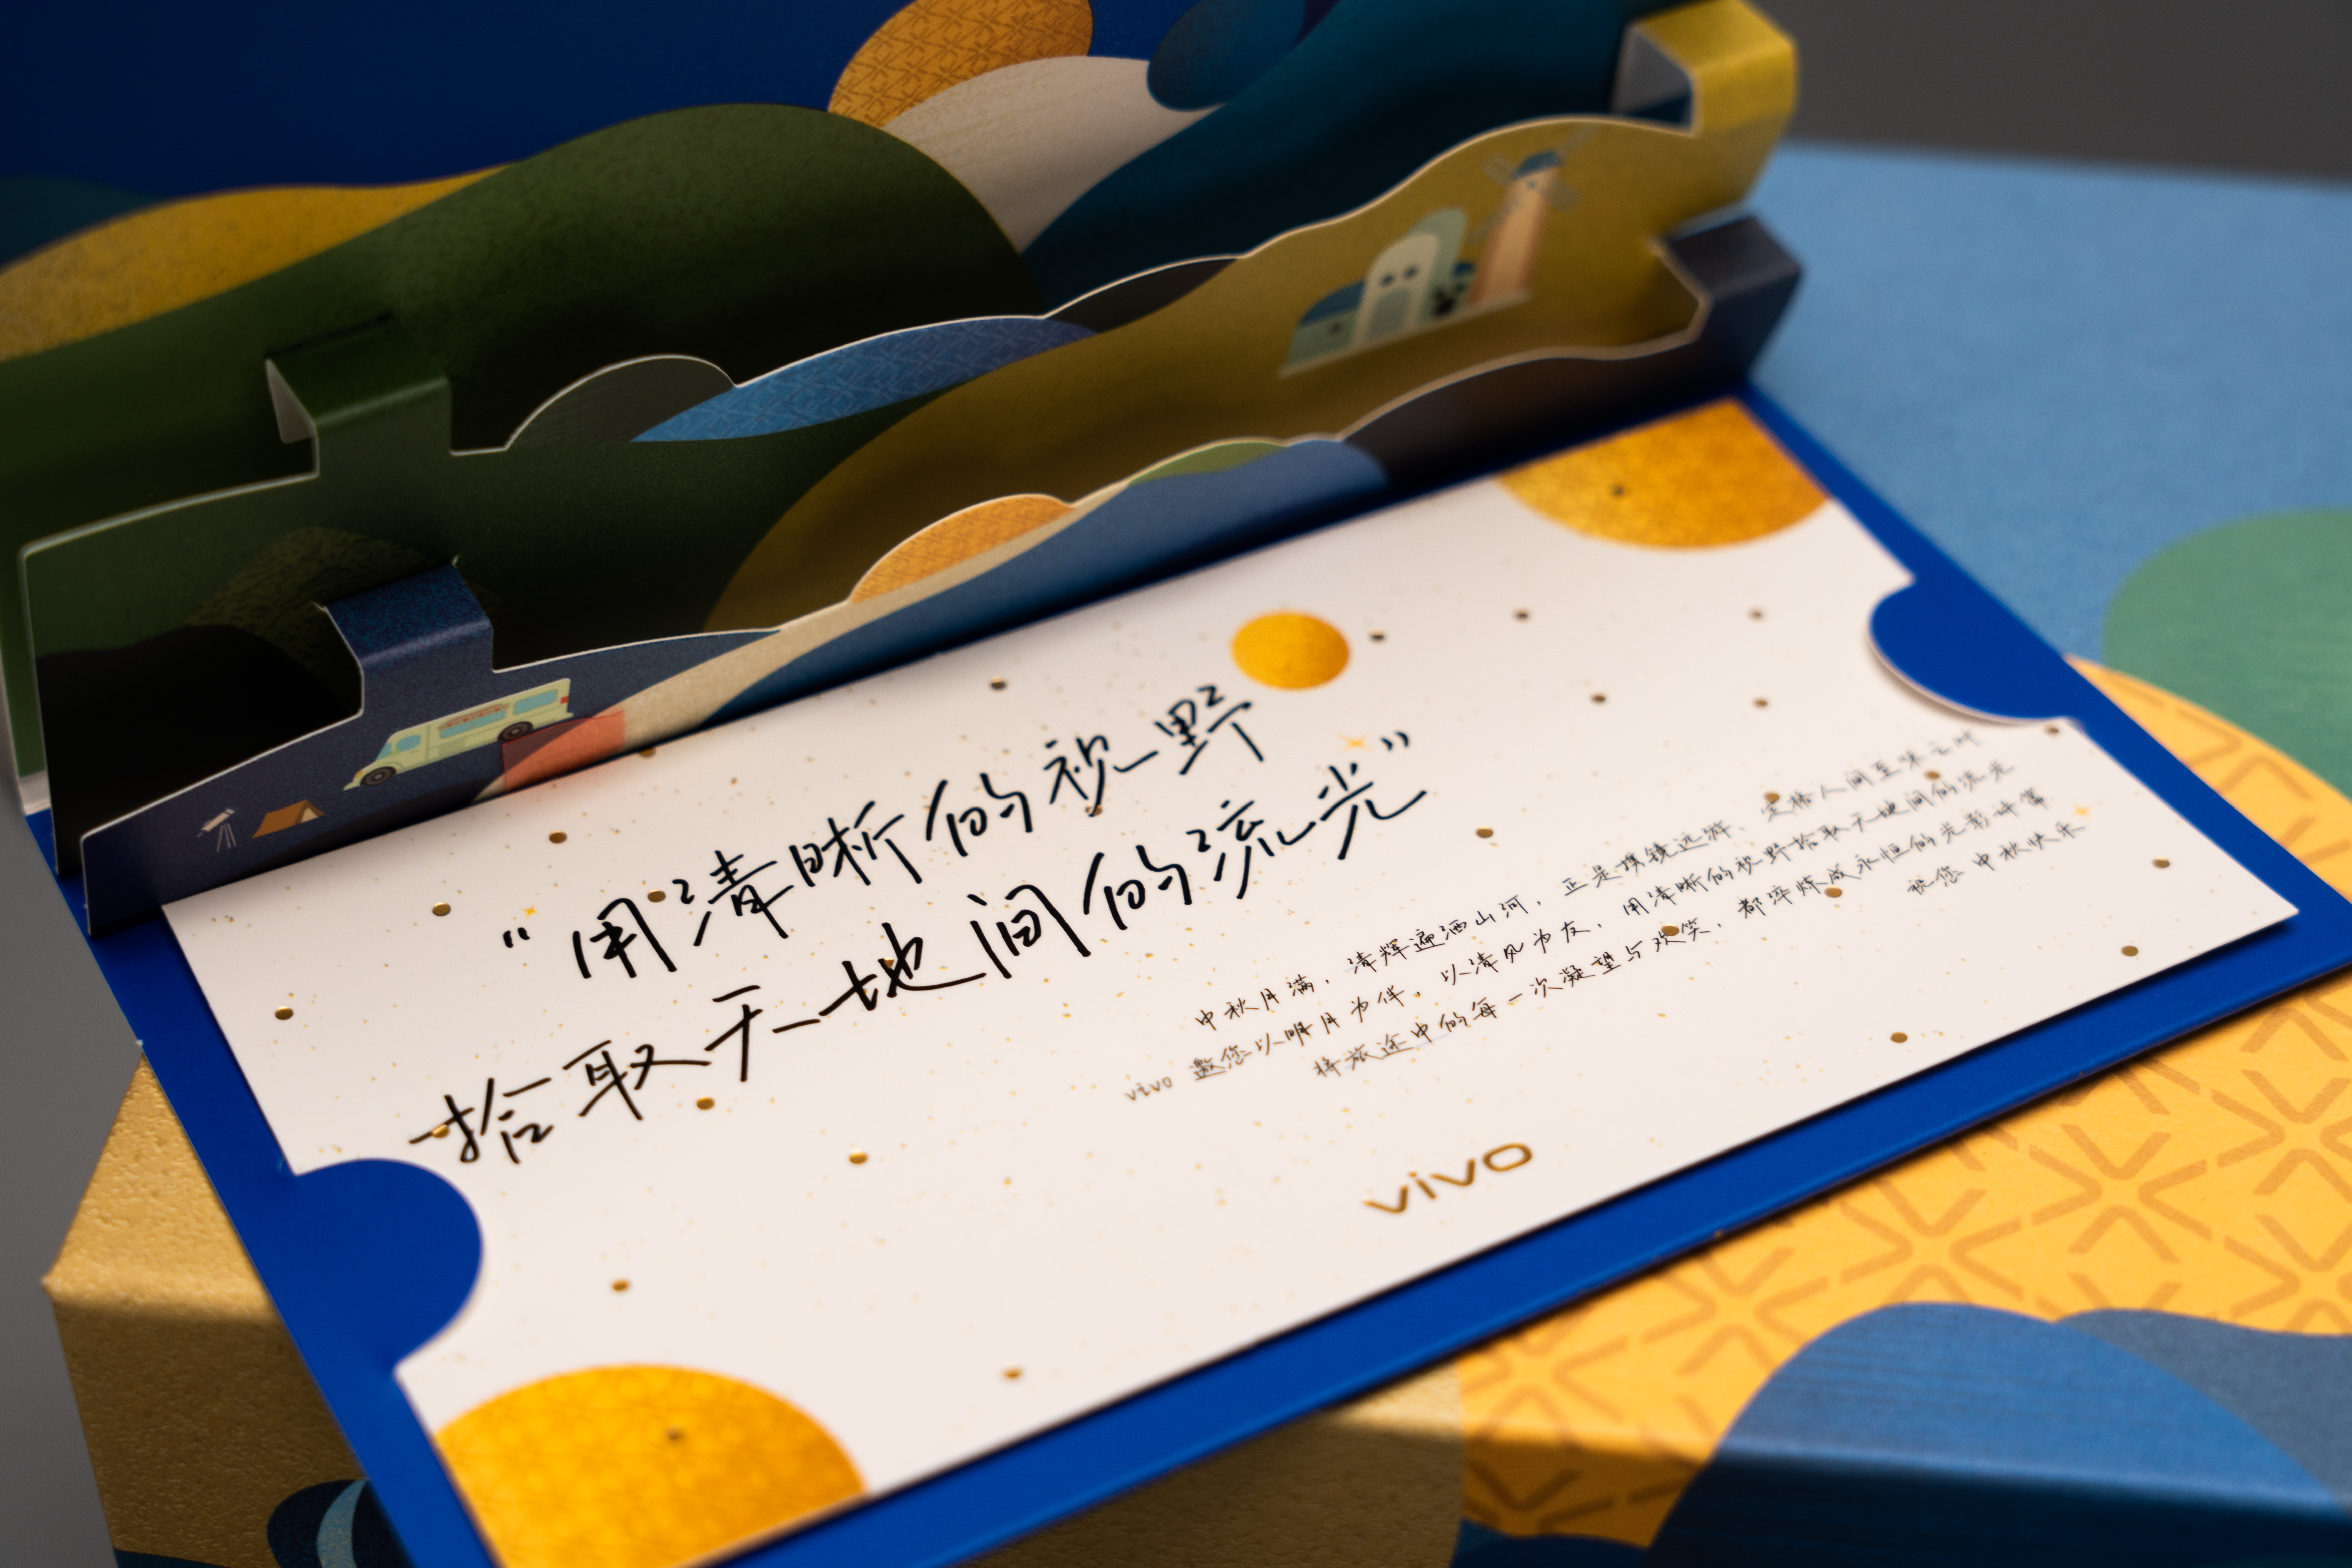 “用清晰的视野
拾取天地间的流光”
中秋月满，清辉遍洒山河，正是携镜远游、定格人间至味之时
vivo 邀您以明月为伴，以清风为友，用清晰的视野拾取天地间的流光
将旅途中的每一次凝望与欢笑，都淬炼成永恒的光影诗篇
祝您 中秋快乐
vivo